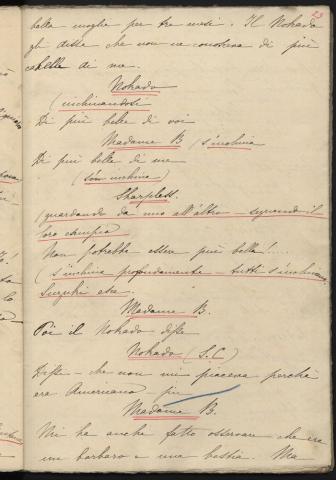 23
bella moglie per tre mesi. Il Nohado
gli disse che non ne conosceva di più
belle di me.
Nohado
(inchinandosi
Di più belle di voi
Madame B (s'inchina
Di più belle di me
(s'inchina)
Sharpless.
(guardando da uno all'altro – seguendo il
loro esempio
Non potrebbe essere più bella!....
(s'inchina profondamente – tutti s'inchinano,
Suzuki etc.
Madame B.
Poi il Nohado disse
Nohado (S.C)
Dissi – che non mi piaceva perchè
era Americano – più
Madame B.
Mi ha anche fatto osservare – che era
un barbaro e una bestia. Ma